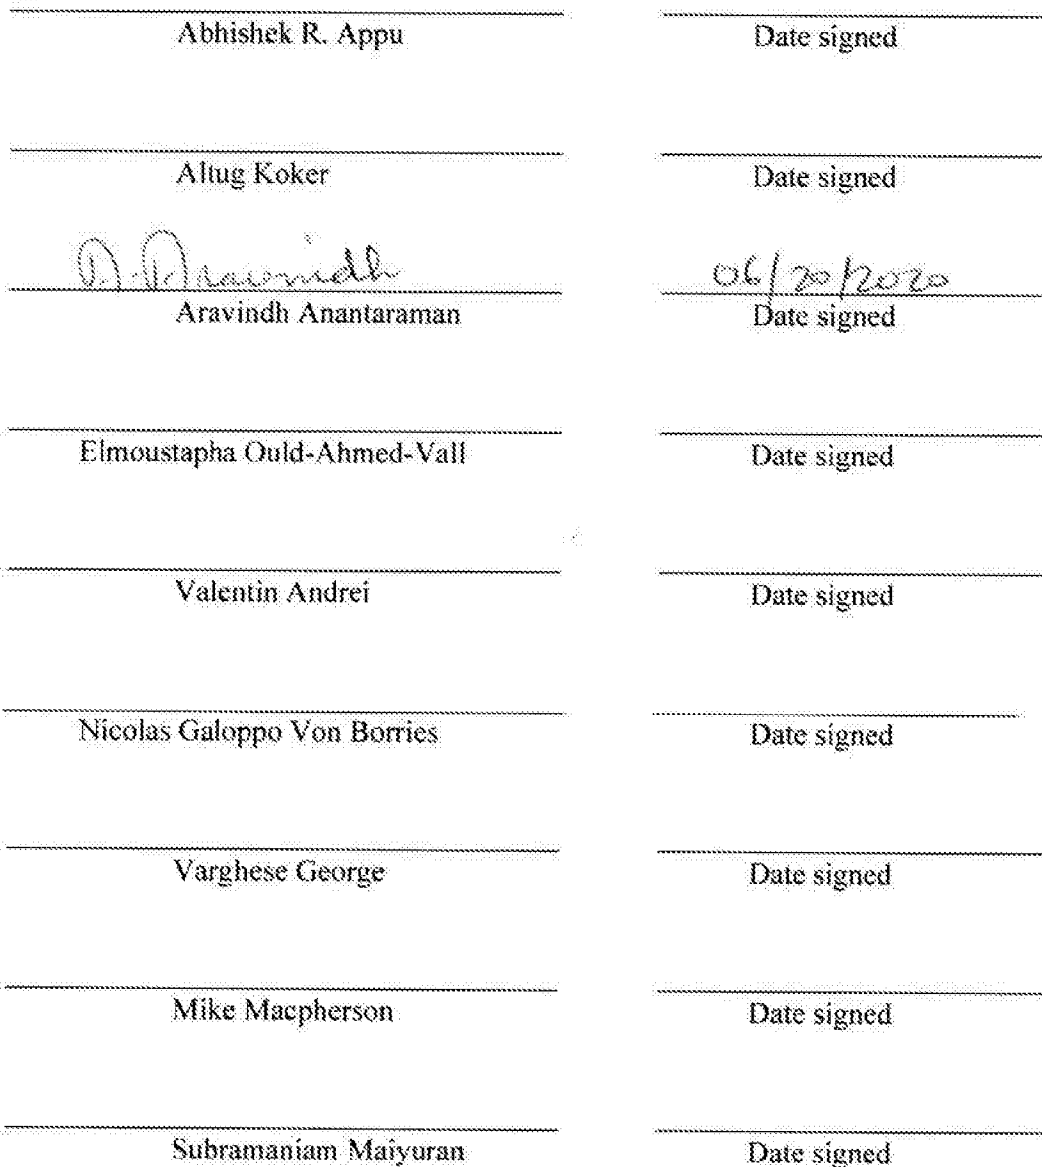 Abhishek R. Appu Date signed
Altug Koker Date signed
A. Aravindh 06/20/2020
Aravindh Anantaraman Date signed
Elmoustapha Ould-Ahmed-Vall Date signed
Valentin Andrei Date signed
Nicolas Galoppo Von Borries Date signed
Varghese George Date signed
Mike Macpherson Date signed
Subramaniam Maiyuran Date signed